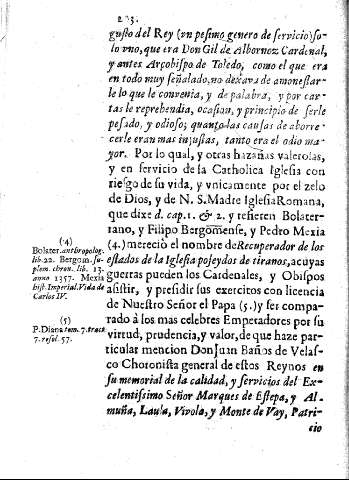 203.
gusto del Rey (vn pesimo genero de servicio) so-
lo vno, que era Don Gil de Albornoz Cardenal,
y antes Arçobispo de Toledo, como el que era
en todo muy señalado, no dexava de amonestar-
le lo que le convenia, y de palabra, y por car-
tas le reprehendia, ocasion, y principio de serle
pesado, y odioso; quanto las causas de aborre-
cerle eran mas injustas, tanto era el odio ma-
yor. Por lo qual, y otras hazañas valerosas,
y en servicio de la Catholica Iglesia con
riesgo de su vida, y vnicamente por el zelo
de Dios, y de N. S. Madre Iglesia Romana,
que dixe d. cap. 1. & 2. y refieren Bolater-
rano, y Filipo Bergomense, y Pedro Mexia
(4.) mereciò el nombre de Recuperador de los
estados de la Iglesia poseydos de tiranos, a cuyas
guerras pueden los Cardenales, y Obispos
asistir, y presidir sus exercitos con licencia
de Nuestro Señor el Papa (5.) y ser compa-
rado à los mas celebres Emperadores por su
virtud, prudencia, y valor, de que haze par-
ticular mencion Don Juan Baños de Velas-
co Choronista general de estos Reynos en
su memorial de la calidad, y servicios del Ex-
celentissimo Señor Marques de Estepa, y Al-
muña, Laula, Vivola, y Monte de Vay, Patri-
cio
(4)
Bolater. anthropolog.
lib. 22. Bergom. su-
plem. chron. lib. 13.
anno 1357. Mexia
hist. Imperial. Vida de
Carlos IV.
(5)
P. Diana tom. 7. tract.
7. resol. 57.